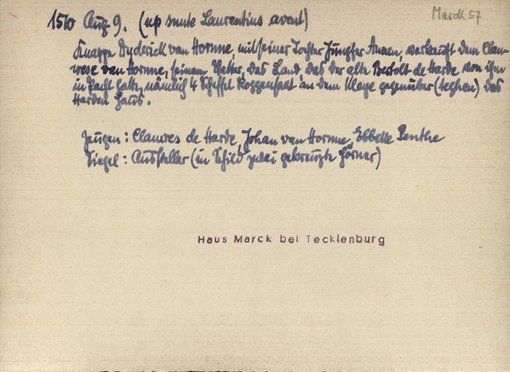 1510 Aug 9. (up sunte Laurentius avent)
Marck 57
Knappe Dyderick van Hornne, mit seiner Tochter Jungfer Annen, verkauft dem Clawese van Hornne, seinem Vetter, das Land, das der alte Bertolt de Harde von ihm
in Pacht hatte, nämlich 4 Scheffel Roggensaat an dem Wege gegenüber (teghen) des
Harden Haus.
Zeugen: Clawes de Harde, Johan van Hornne, Ebbeke
Siegel: Aussteller (im Schild zwei gekreuzte Hörner)
Haus Marck bei Tecklenburg